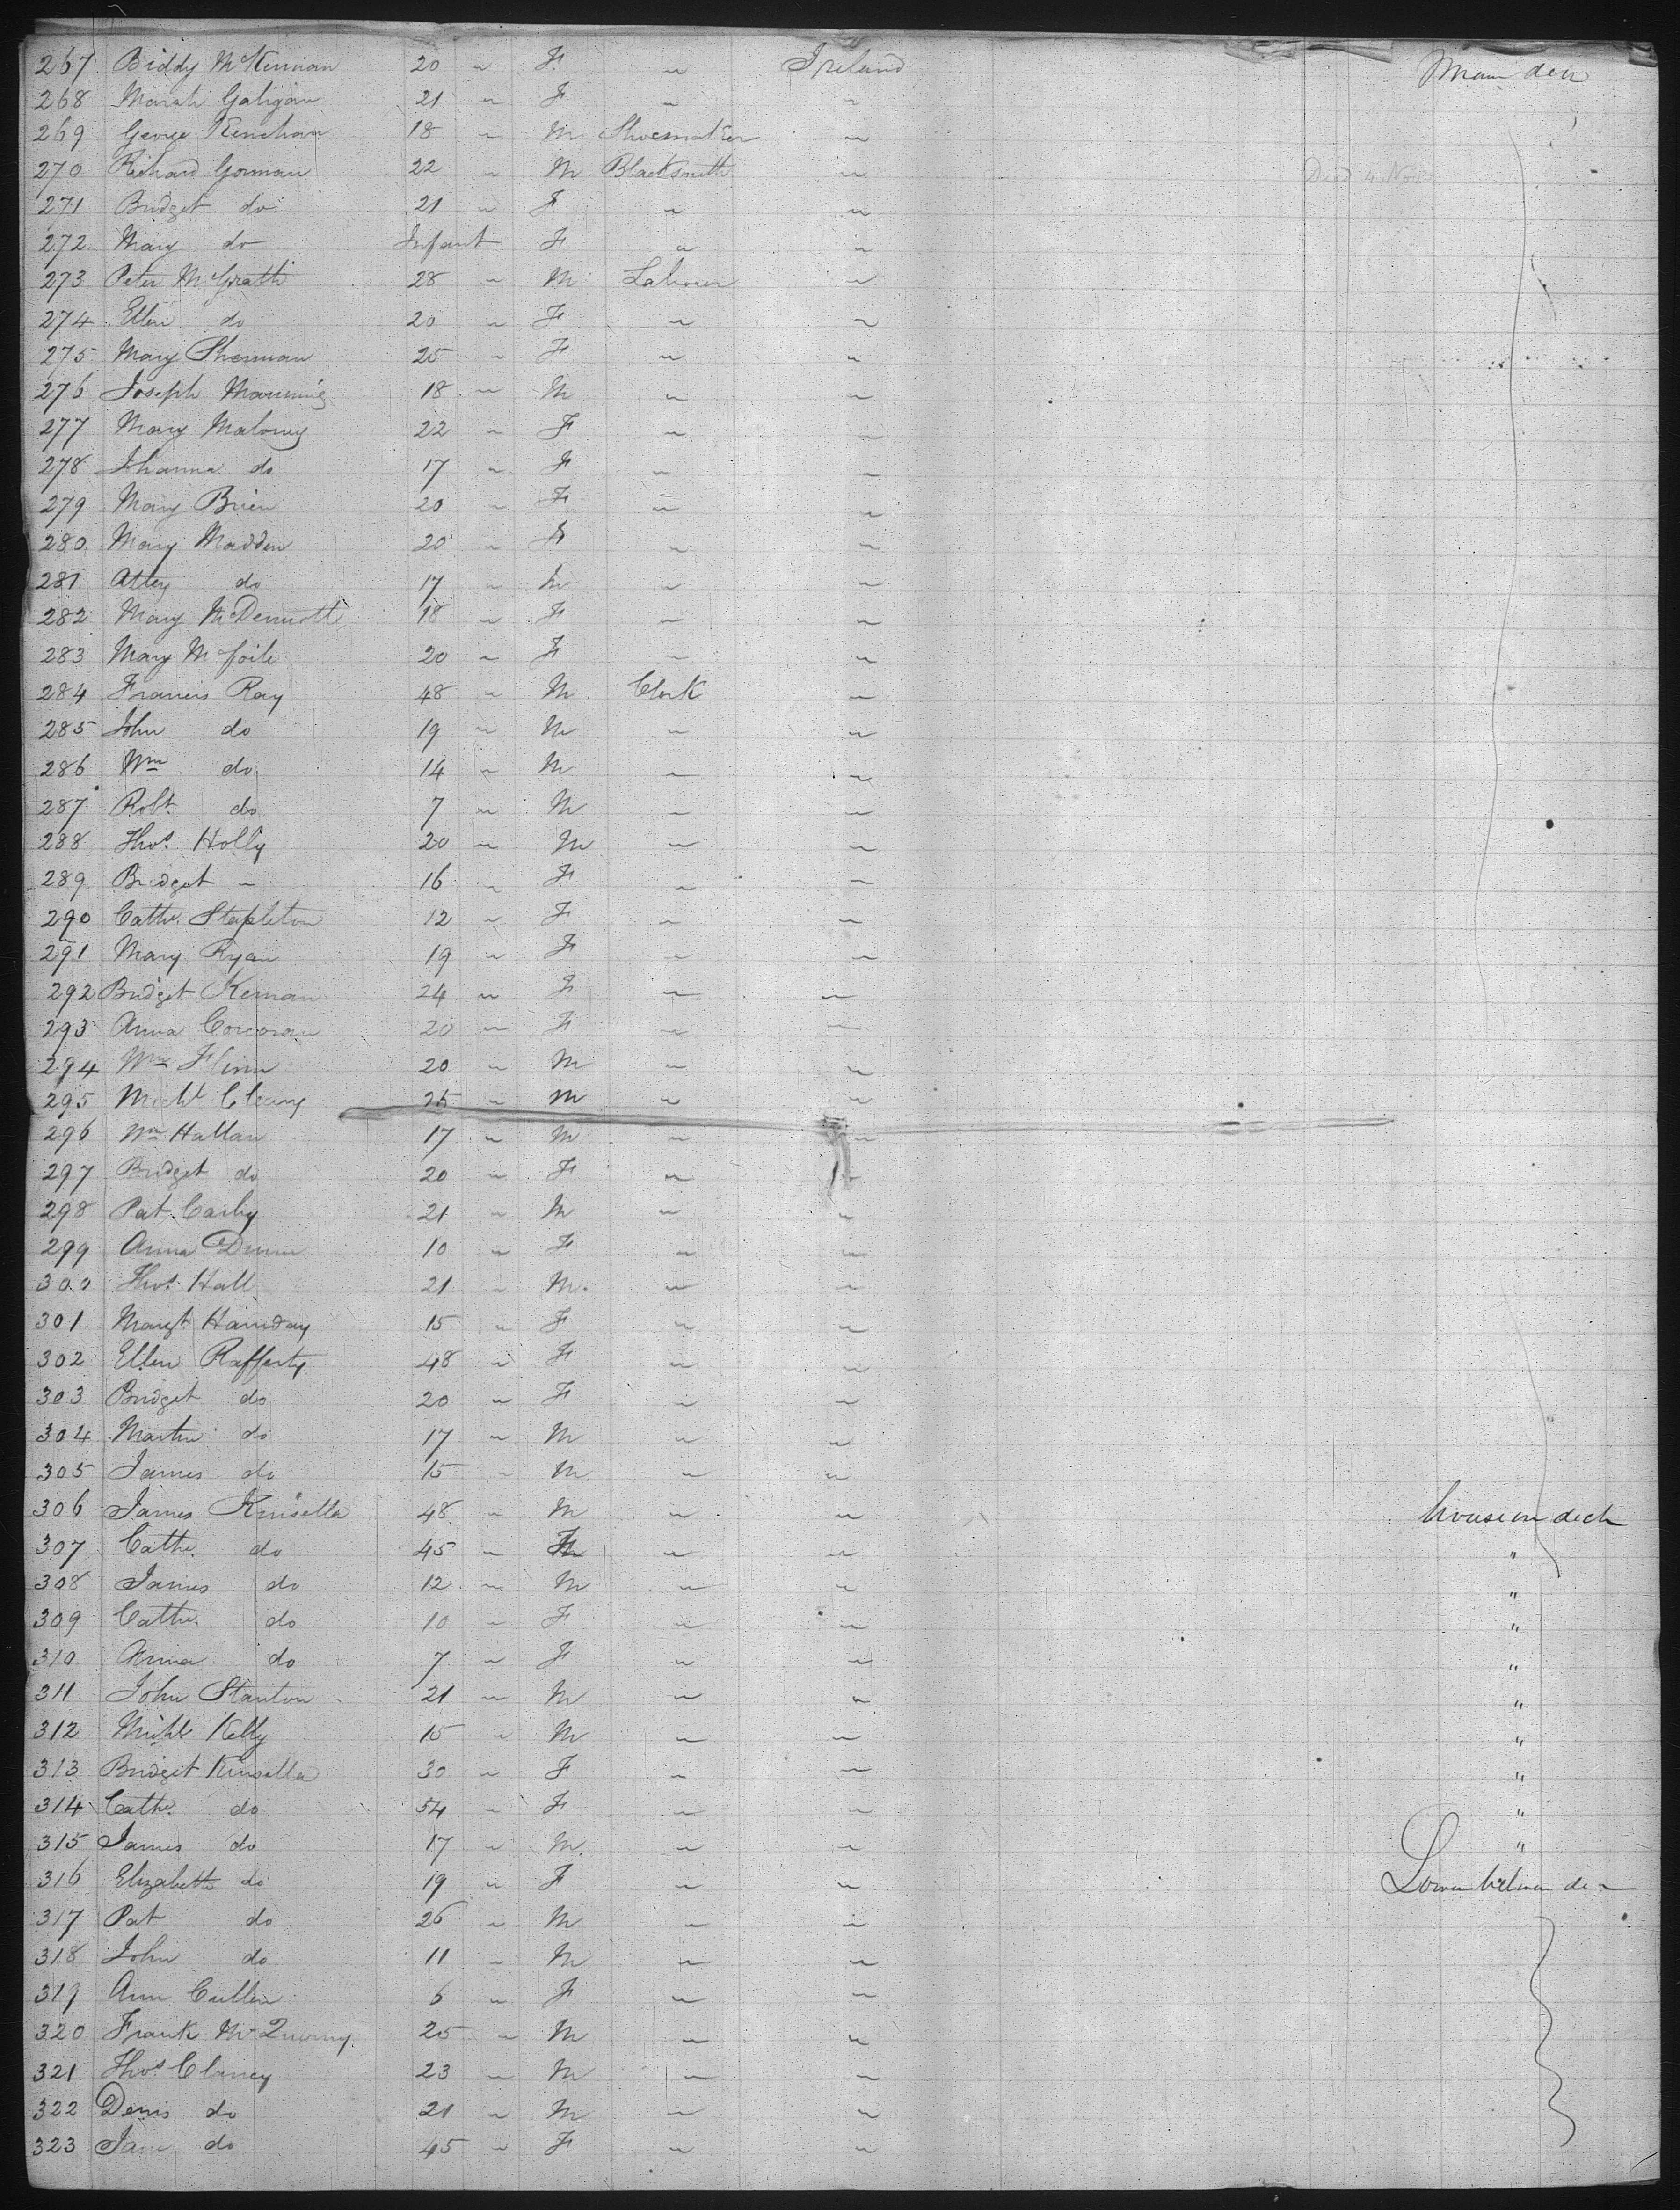 267 Biddy McKiernan 20 " F. " Ireland Main deck
268 Mariah Galigan 21 " F " "
269 George Kenehan 18 " M Shoemaker "
270 Richard Gorman 22 " M Blacksmith " Died 4 Nov
271 Bridget do 21 " F " "
272 Mary do Infant F " "
273 Peter McGrath 28 " M Labourer "
274 Ellen do 20 " F " "
275 Mary Sherman 25 " F " "
276 Joseph Manning 18 " M " "
277 Mary Maloney 22 " F " "
278 Johanna do 17 " F " "
279 Mary Brien 20 " F " "
280 Mary Madden 20 " F " "
281 do 17 " " "
282 Mary McDermott 18 " F " "
283 Mary 20 " F " "
284 Francis Ray 48 " M Clerk "
285 John do 19 " M " "
286 Wm do 14 " M " "
287 Robt do 7 " M " "
288 Thos. Holly 20 " M " "
289 Bridget " 16 " F " "
290 Cathe. Stapleton 12 " F " "
291 Mary Ryan 19 " F " "
292 Bridget Kernan 24 " F " "
293 Anna Corcoran 20 " F " "
294 Wm Flinn 20 " M " "
295 Michl Cleary 25 " M " "
296 Wm Hallan 17 " M " "
297 Bridget do 20 " F " "
298 Pat. Carby 21 " M " "
299 Anna Dunn 10 " F " "
300 Thos. Hall 21 " M. " "
301 Margt 15 " F " "
302 Ellen Rafferty 48 " F " "
303 Bridget do 20 " F " "
304 Martin do 17 " M " "
305 James do 15 " M " "
306 James Kinsella 48 " M " " house on deck
307 Cathe. do 45 " F " " "
308 James do 12 " M " " "
309 Cathe. do 10 " F " " "
310 Anna do 7 " F " " "
311 John Stanton 21 " M " " "
312 Michl Kelly 15 " M " " "
313 Bridget Kinsella 30 " F " " "
314 Cathe. do 54 " F " " "
315 James do 17 " M. " " "
316 Elizabeth do 19 " F " " Lower between deck
317 Pat do 26 " M " "
318 John do 11 " M " "
319 Ann Cullen 6 " F " "
320 Frank 25 " M " "
321 Thos Clancy 23 " M " "
322 Denis do 21 " M " "
323 Jane do 45 " F " "